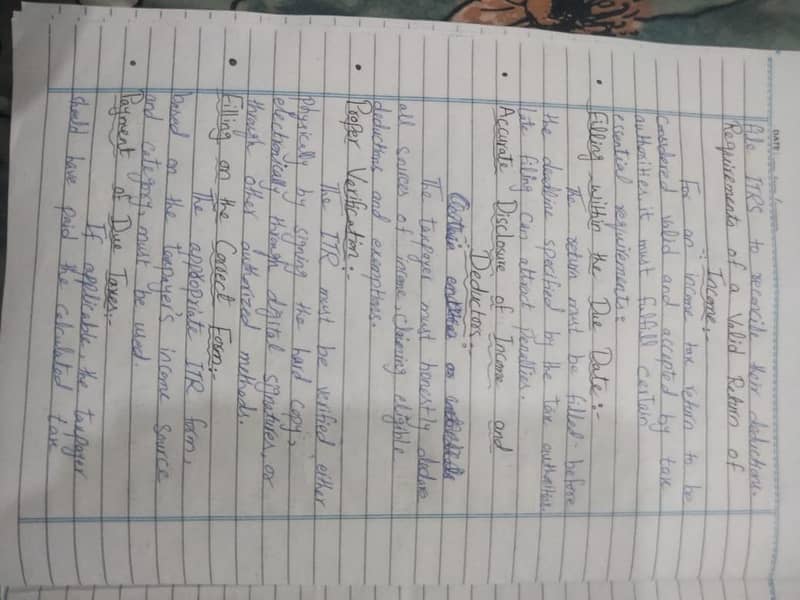 DATE
file ITRS to reconcile their deductions.
Requirements of a Valid Return of
Income:-
For an income tax return to be
considered valid and accepted by tax
authorities, it must fulfill certain
essential requirements:
• Filling within the Due Date:-
The return must be filled before
the deadline specified by the tax authorities.
late filing can attract penalties.
• Accurate Disclosure of Income and
Deductions:-
The taxpayer must honestly declare
all sources of income, claiming eligible
deductions and exemptions.
• Proper Verification:-
The ITR must be verified either
physically by signing the hard copy,
electronically through digital signatures, or
through other authorized methods.
• Filling on the Correct Form:-
The appropriate ITR form,
based on the taxpayer's income source
and category, must be used.
• Payment of Due Taxes:-
If applicable, the taxpayer
should have paid the calculated tax